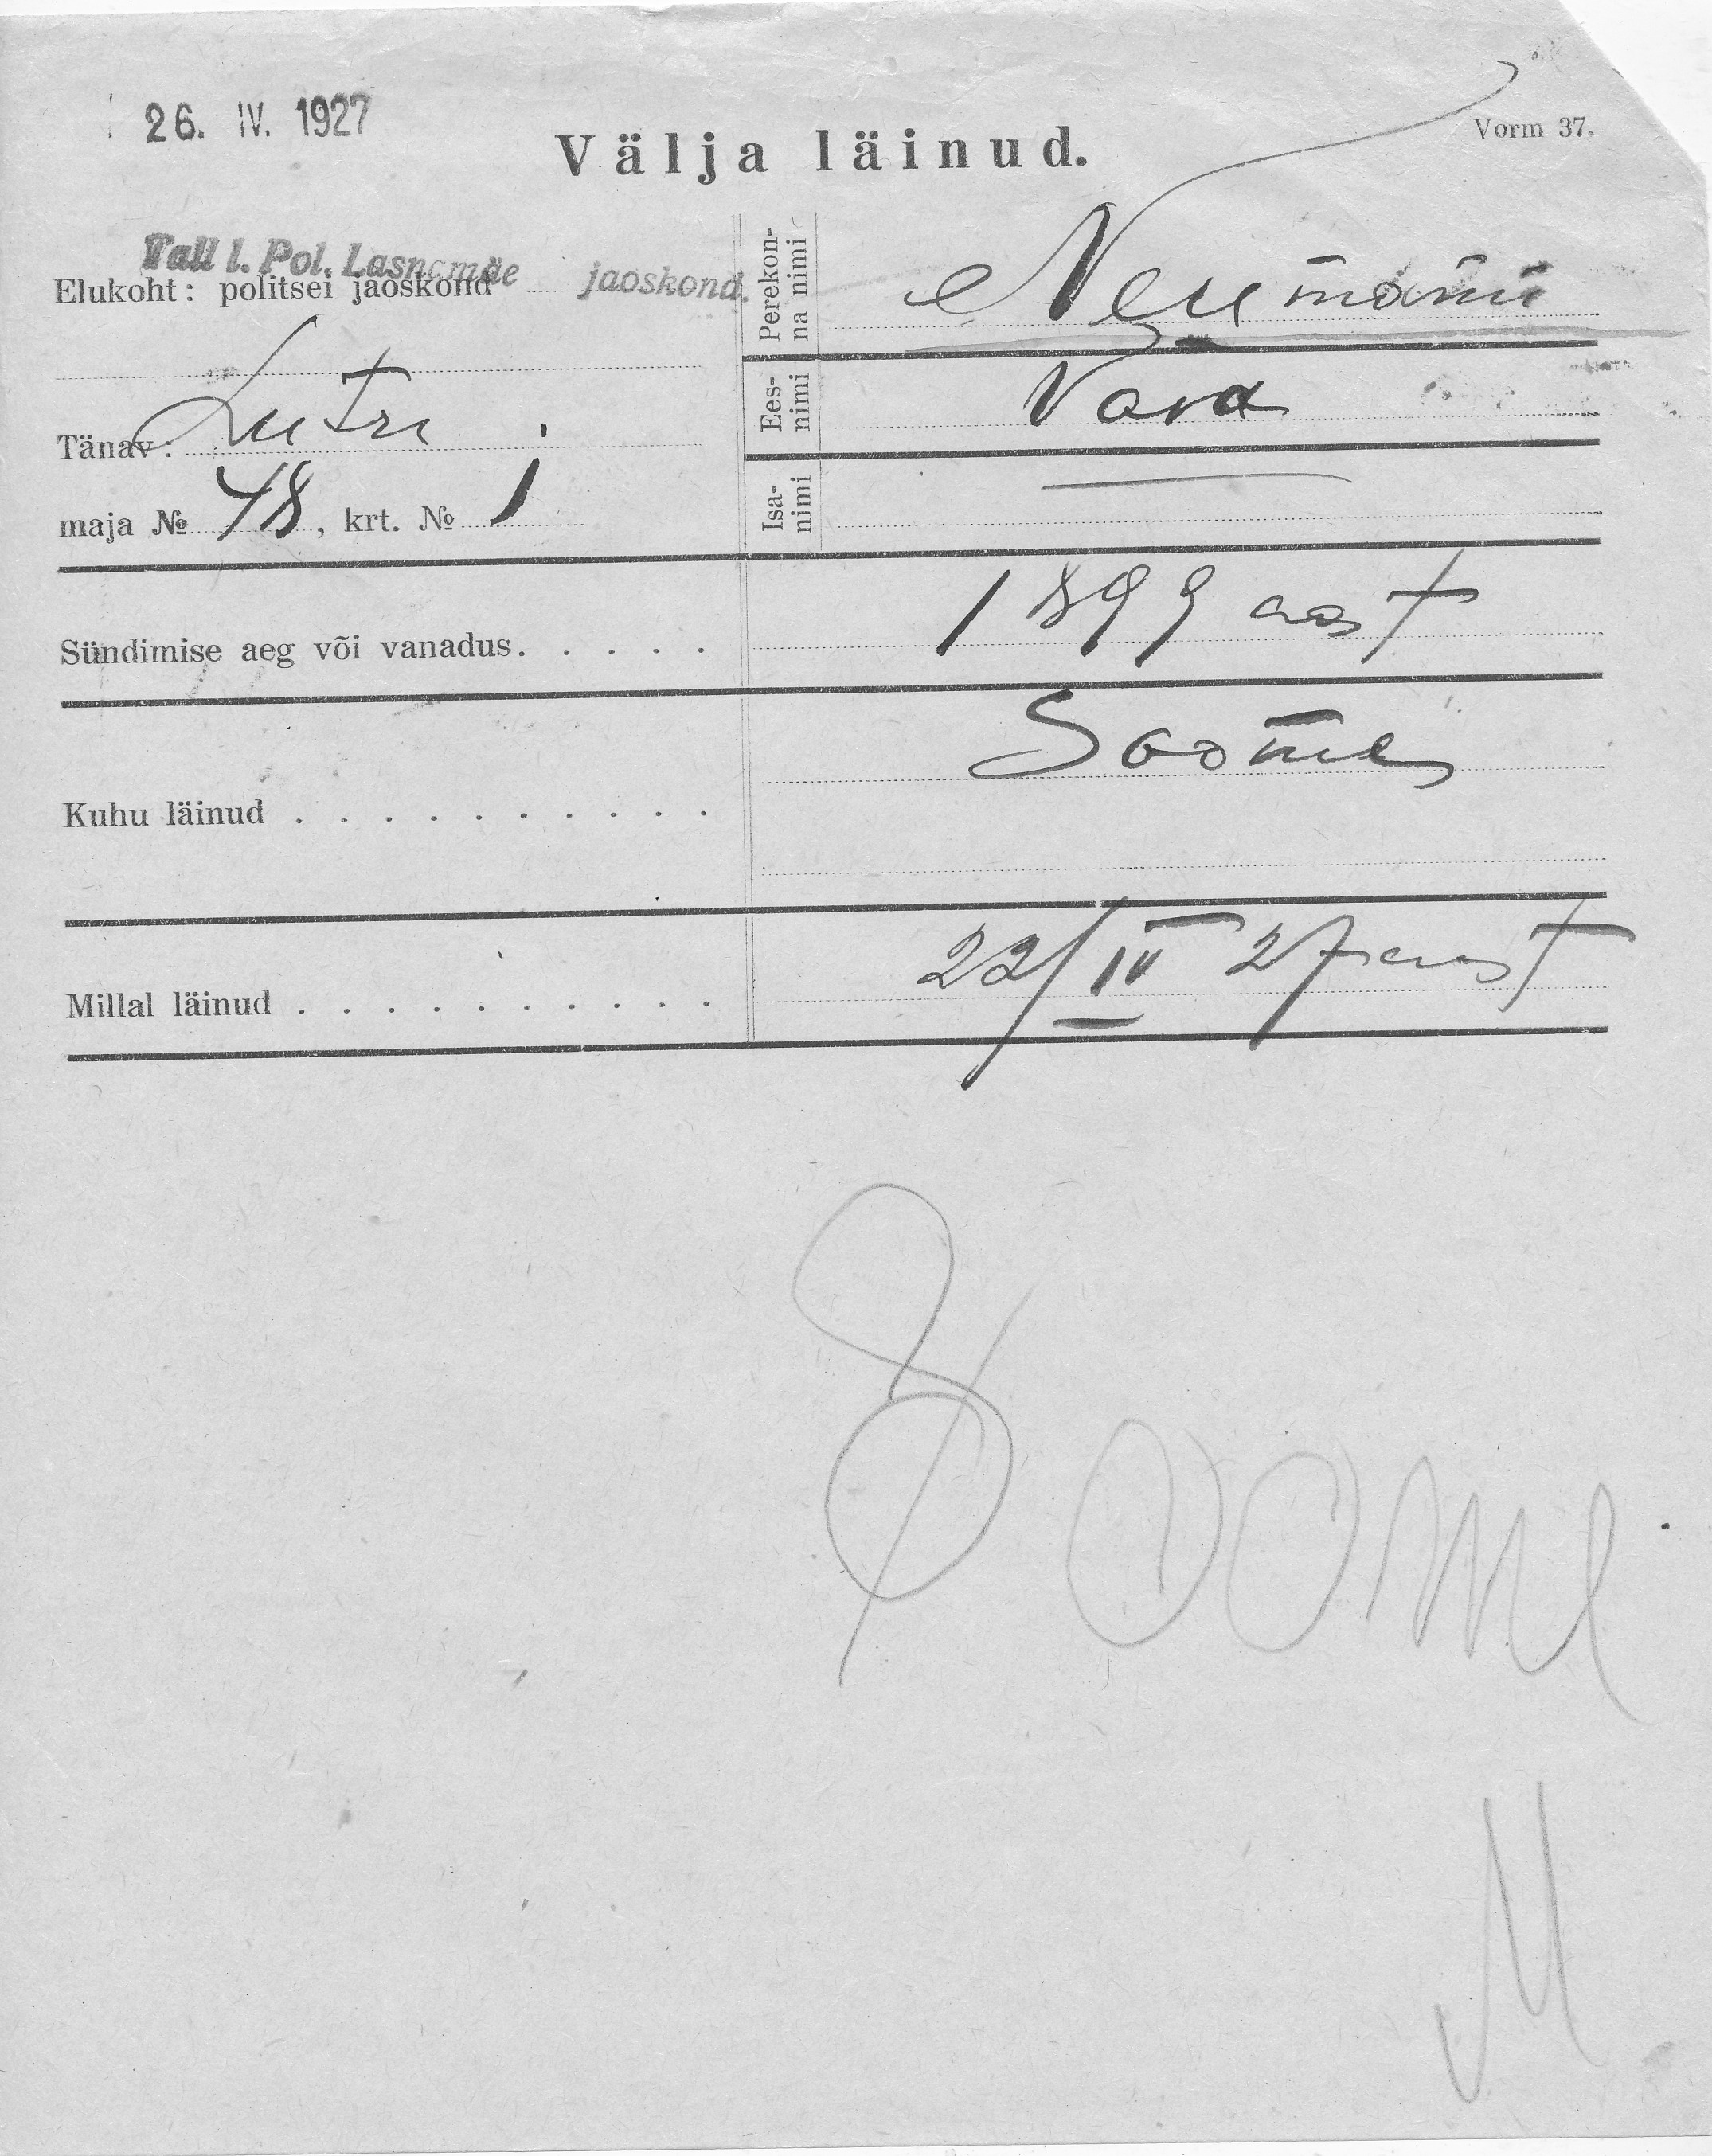 26. IV. 1927
Vorm 37.
Välja läinud.
Tall l. Pol. Lasnamäe jaoskond.
Elukoht: politsei jaoskond
Perekonna nimi Neumann
Eesnimi Vara
Tänav: Lutri
maja № 48, krt. № 1
Isanimi
Sündimise aeg või vanadus. 1899 aast
Soome
Kuhu läinud
Millal läinud 22/IV 27 aast
Soome